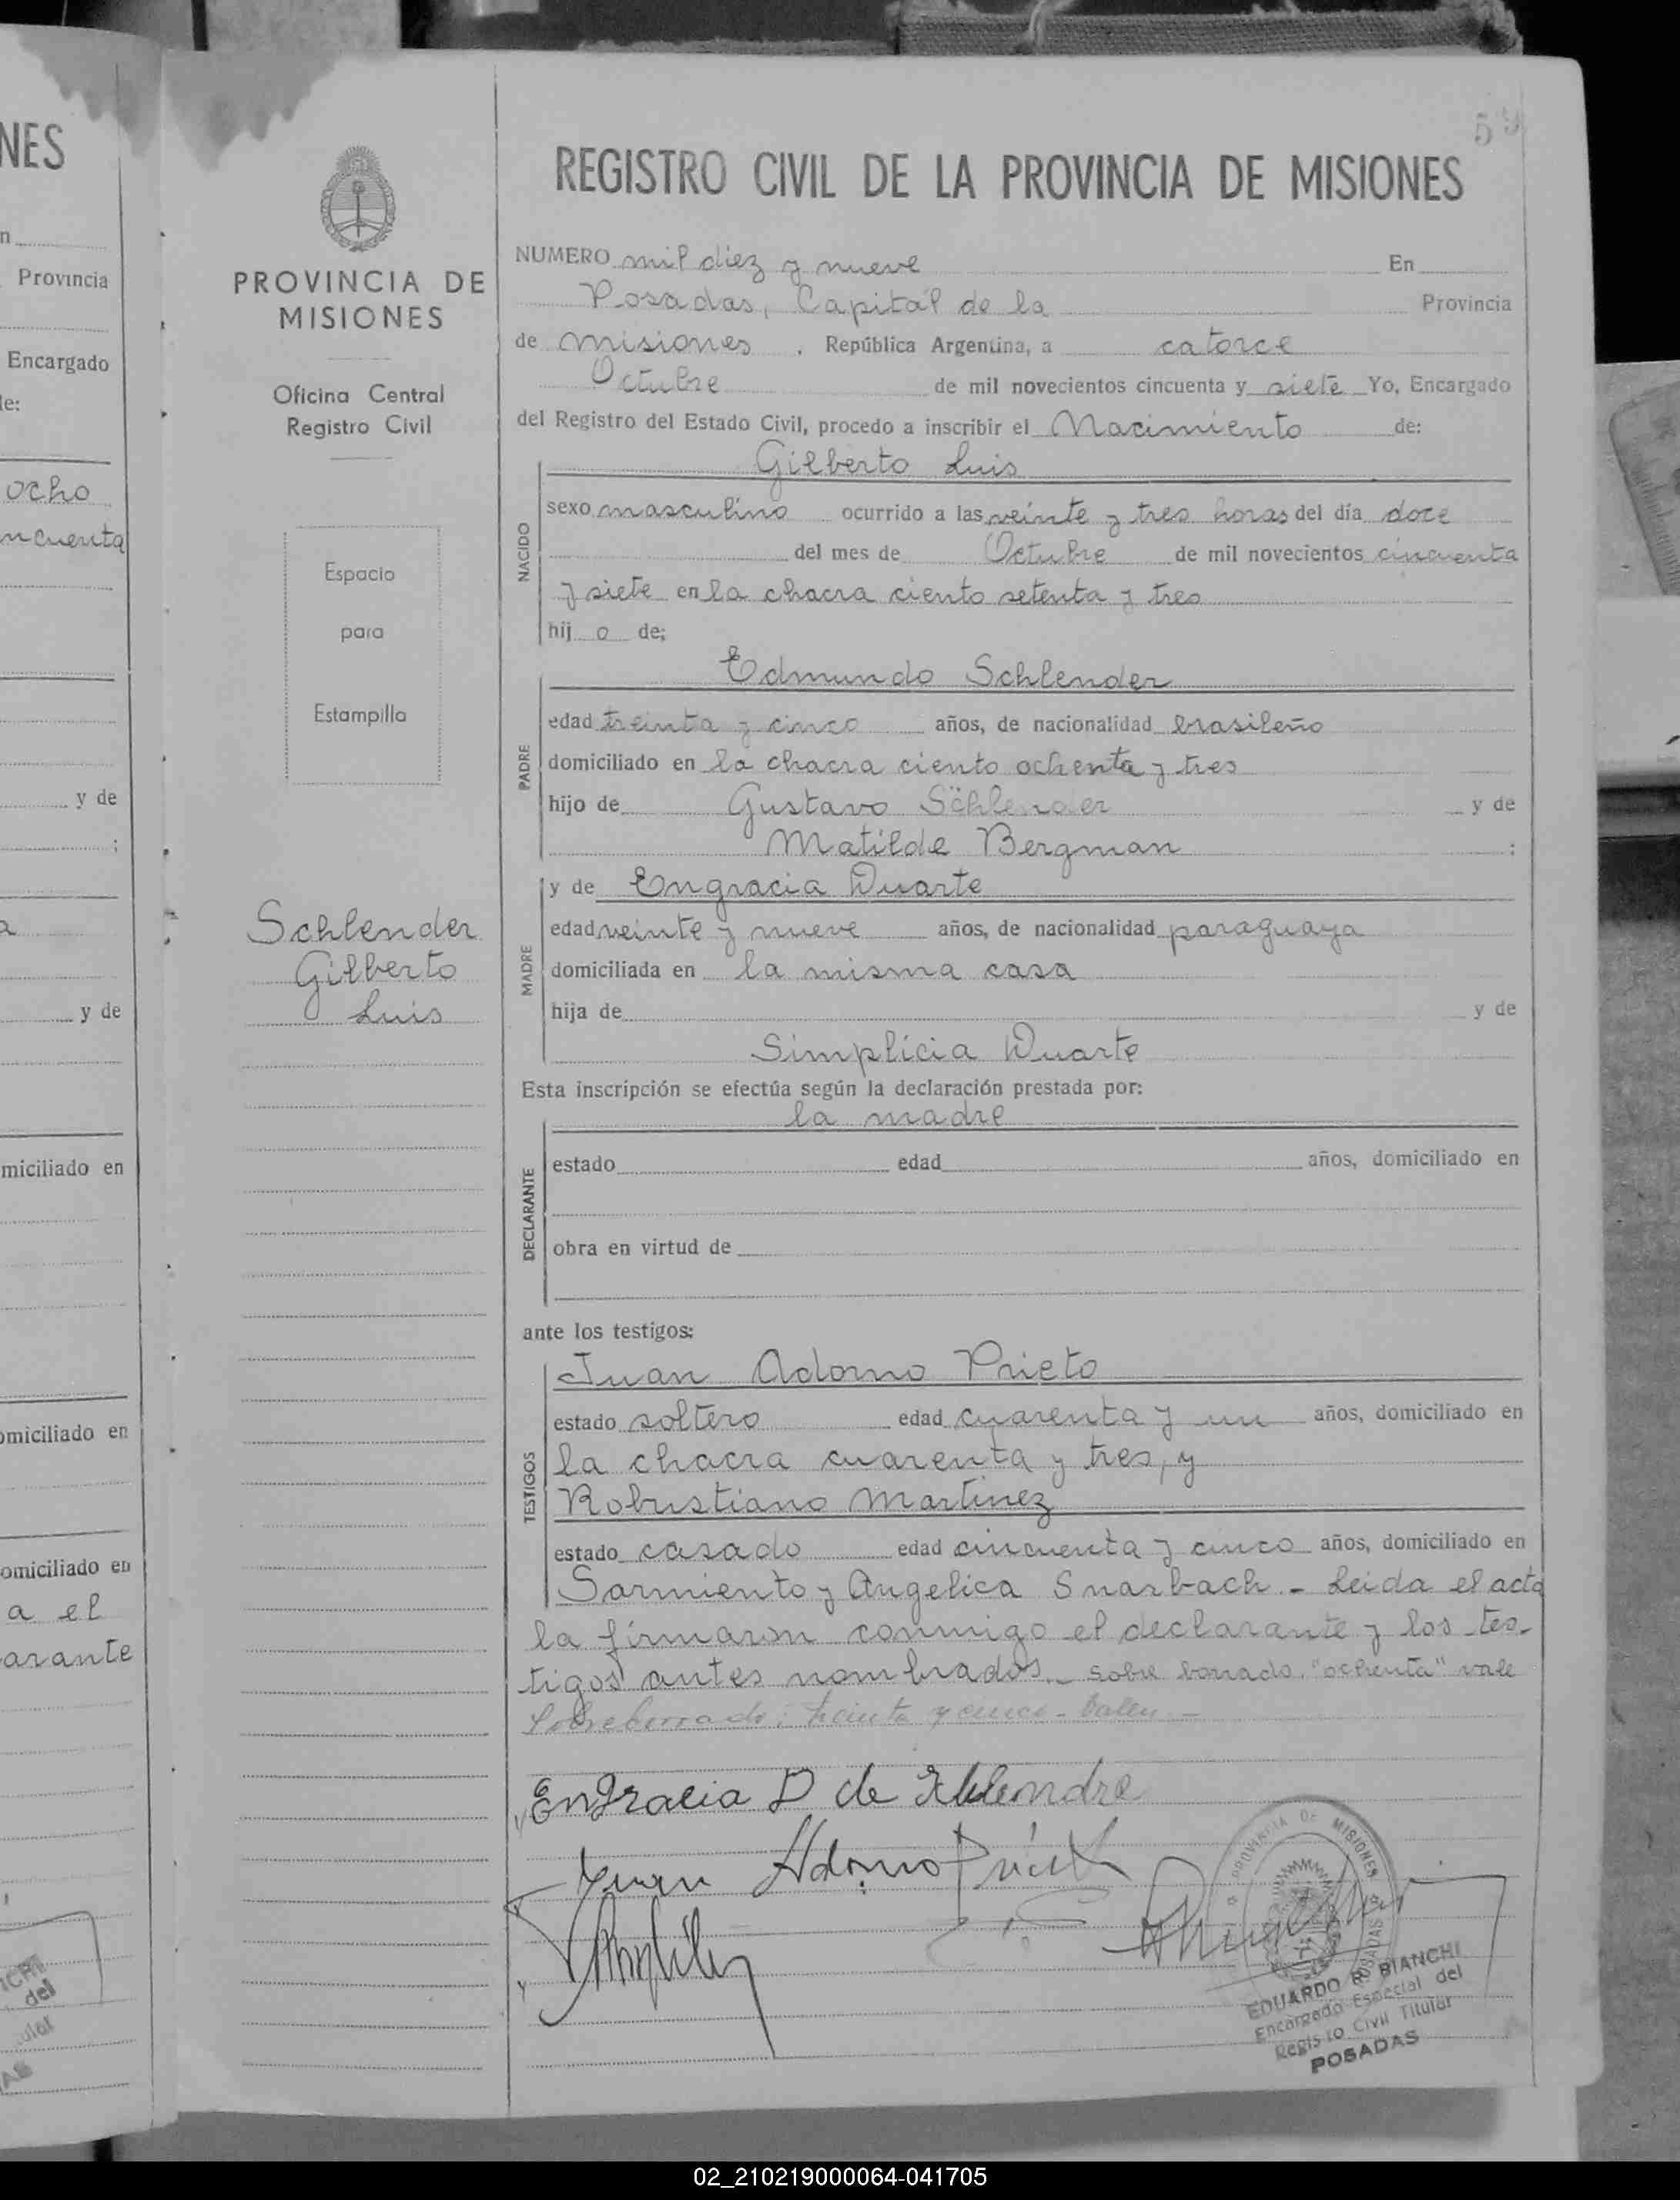 NES
n
Provincia
Encargado
le:
ocho
ncuenta
y de
;
a
y de
miciliado en
omiciliado en
omiciliado en
a el
arante
PROVINCIA DE
MISIONES
Oficina Central
Registro Civil
Espacio
para
Estampilla
Schlender
Gilberto
Luis
59
REGISTRO CIVIL DE LA PROVINCIA DE MISIONES
NUMERO mil diez y nueve En
Posadas, Capital de la Provincia
de misiones, República Argentina, a catorce
Octubre de mil novecientos cincuenta y siete Yo, Encargado
del Registro del Estado Civil, procedo a inscribir el Nacimiento de:
Gilberto Luis
NACIDO
sexo masculino ocurrido a las veinte y tres horas del día doce
del mes de Octubre de mil novecientos cincuenta
y siete en la chacra ciento setenta y tres
hij o de;
Edmundo Schlender
PADRE
edad treinta y cinco años, de nacionalidad brasileño
domiciliado en la chacra ciento ochenta y tres
hijo de Gustavo Schlender y de
Matilde Bergman ;
y de Engracia Duarte
MADRE
edad veinte y nueve años, de nacionalidad paraguaya
domiciliada en la misma casa
hija de y de
Simplicia Duarte
Esta inscripción se efectúa según la declaración prestada por:
la madre
DECLARANTE
estado edad años, domiciliado en
obra en virtud de
ante los testigos:
Juan Adorno Prieto
TESTIGOS
estado soltero edad cuarenta y un años, domiciliado en
la chacra cuarenta y tres, y
Robustiano Martinez
estado casado edad cincuenta y cinco años, domiciliado en
Sarmiento y Angelica Snarbach - Leida el acta
la firmaron conmigo el declarante y los tes-
tigos antes nombrados. - sobre borrado "ochenta" vale
Sobreborrado: treinta y cinco - Valen -
Engracia D de Schlendre
Juan Adorno Prieto
PROVINCIA DE MISIONES
POSADAS
EDUARDO R. BIANCHI
Encargado Especial del
Registro Civil Titular
POSADAS
02_210219000064-041705